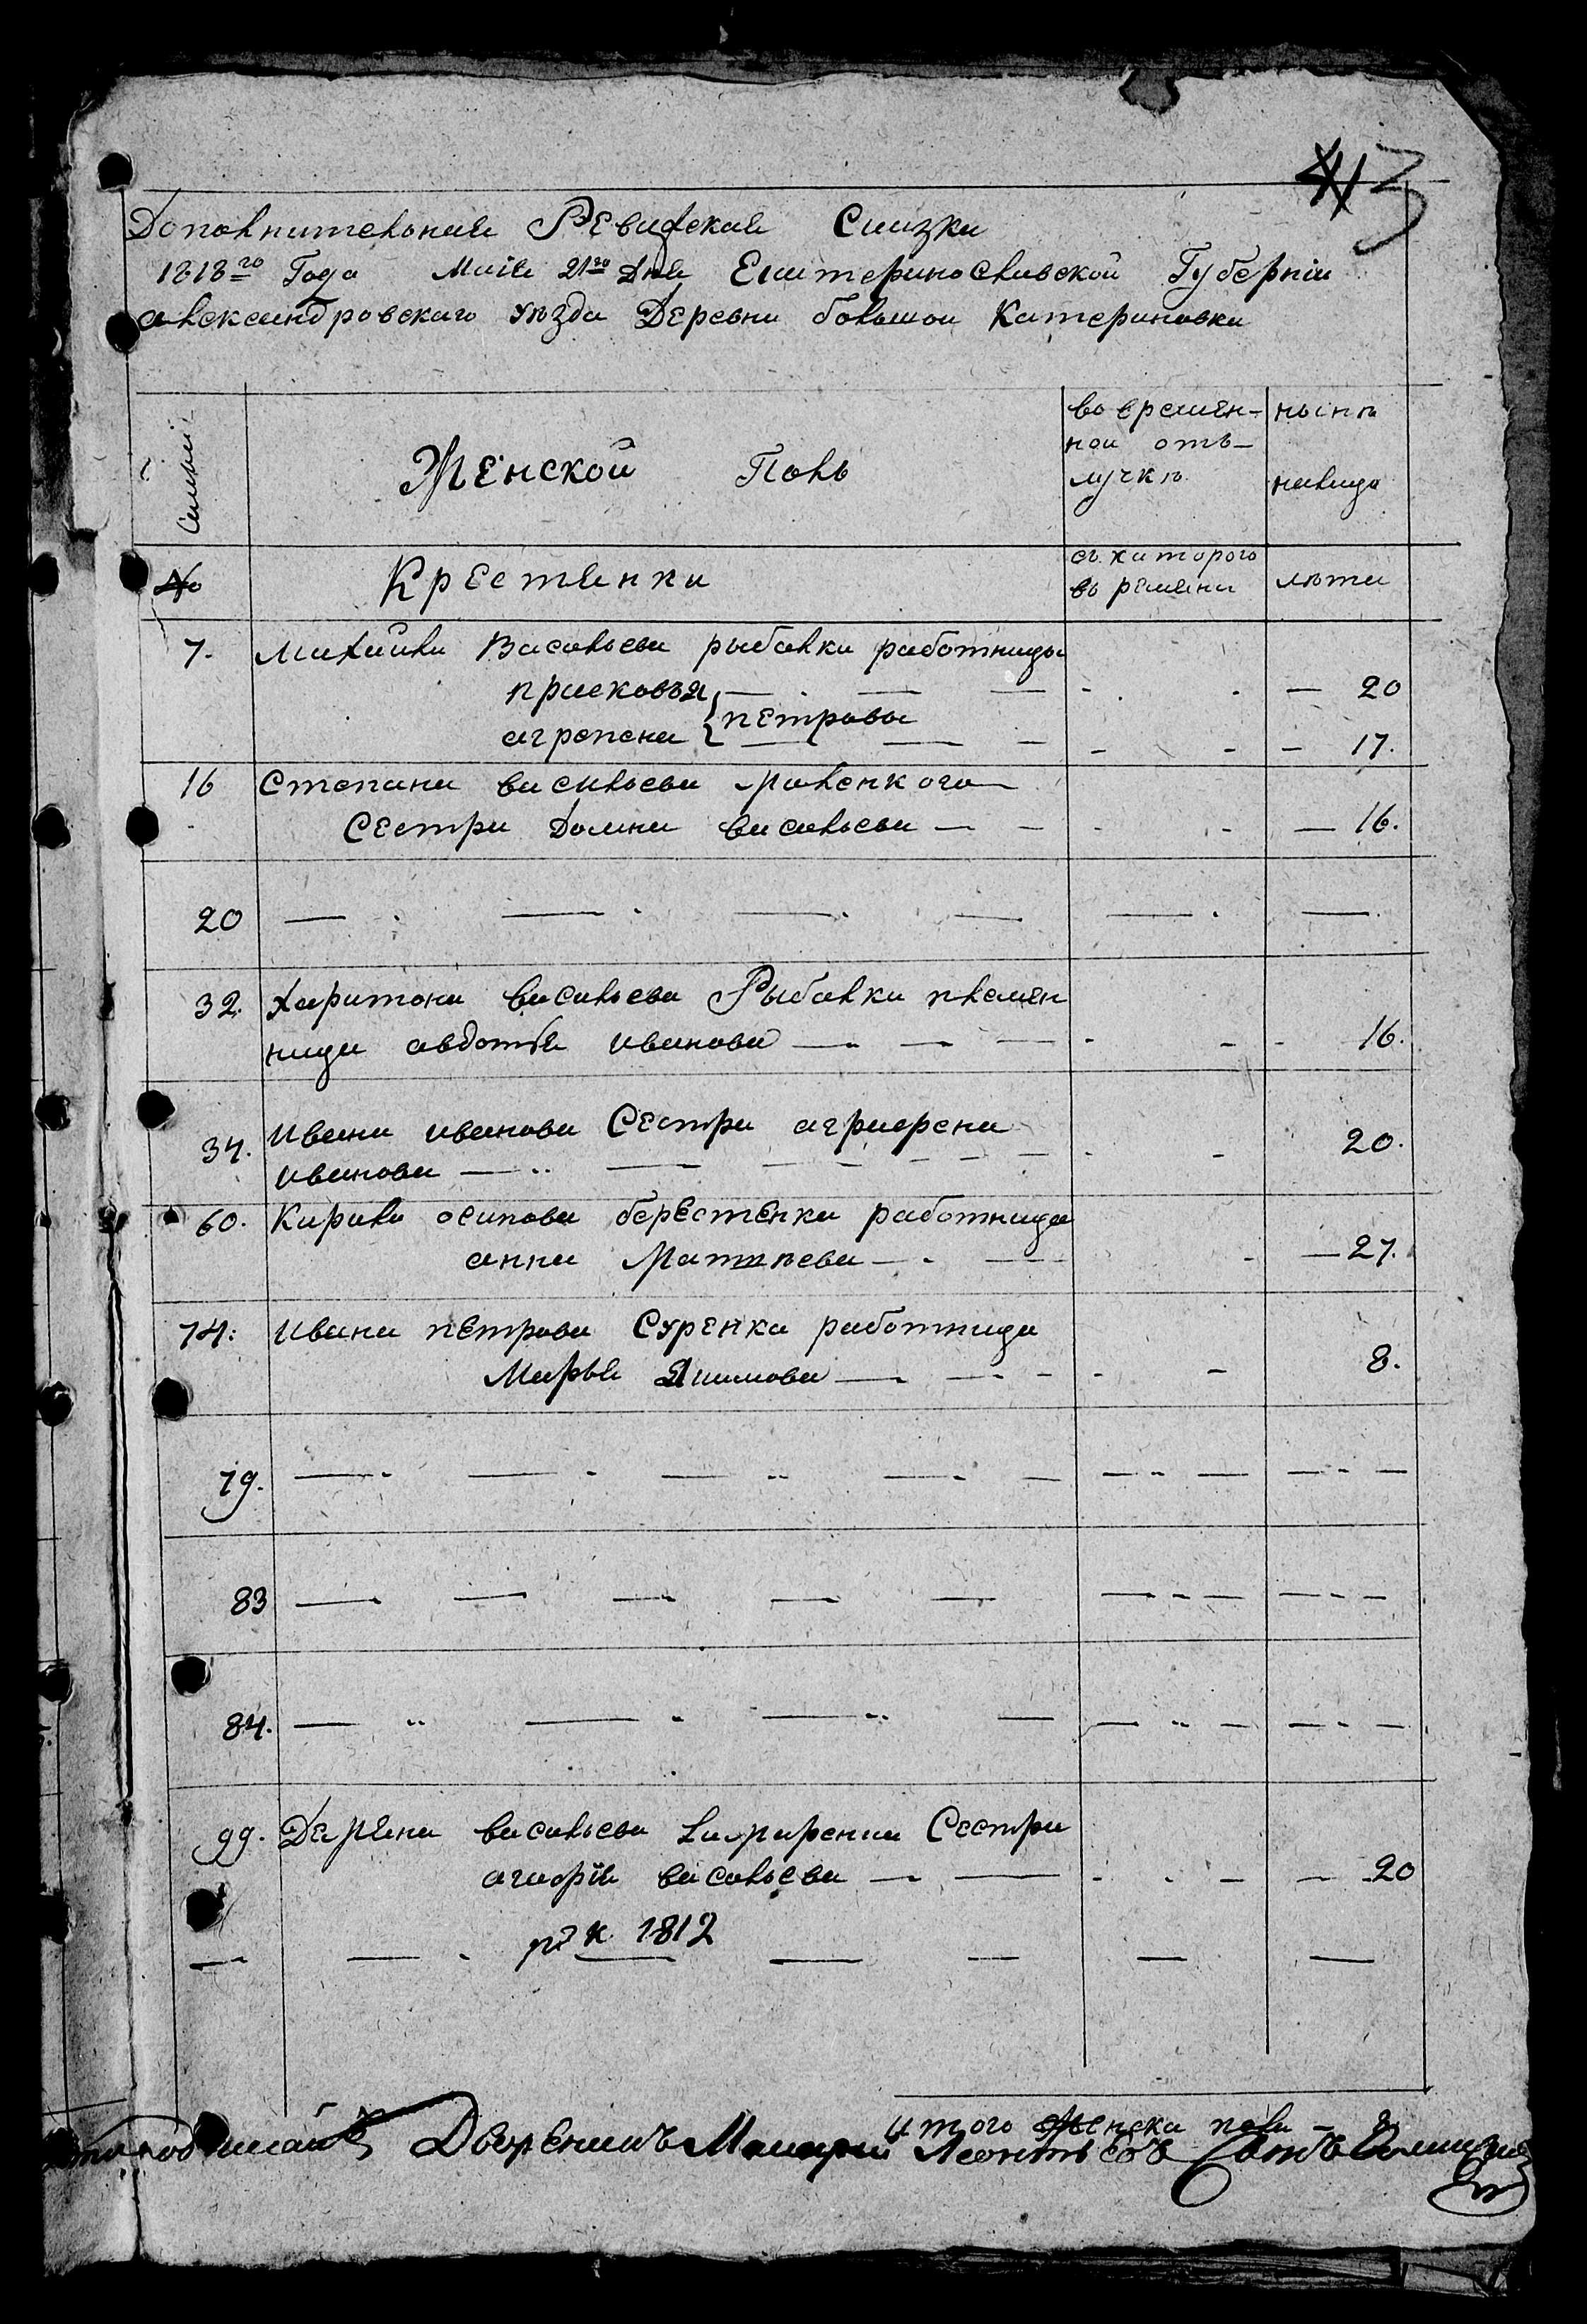 413
Дополнителная Ревижская Сказка
1818го Года Маiя 21го Дня Екатеринославской Губернiи
александровскаго уѣзда Деревни болшои Катериновки
Семьи
Женской Полъ
во времен-
нои отъ-
лучкѣ
нынѣ
налицо
№
Крестянки
съ каторого
времяни
лѣта
7. Михайла Васильева рыбалки работницы
прасковъя — 20
агрепена } петровы — 17.
16 Степана васильева Маленкого
Сестра Домна васильева — 16.
20 — — — —
32. Харитона васильева Рыбалки племян
ница авдотья иванова — 16.
34. Ивана иванова Сестра аграфена
иванова — 20.
60. Кирила осипова берестенка работница
анна Матвѣева — 27.
74: Ивана петрова Суренка работница
Марья Якимова — 8.
79. — — — —
83 — — — —
84. — — — —
99. Демяна васильева Сестра
агафiя васильева — 20
1812
итого женска пола — 8
Дворенинъ Леонтьевъ Сынъ